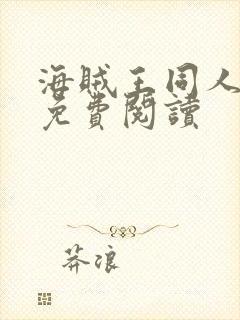 海賊王同人
免費閱讀
莽浪